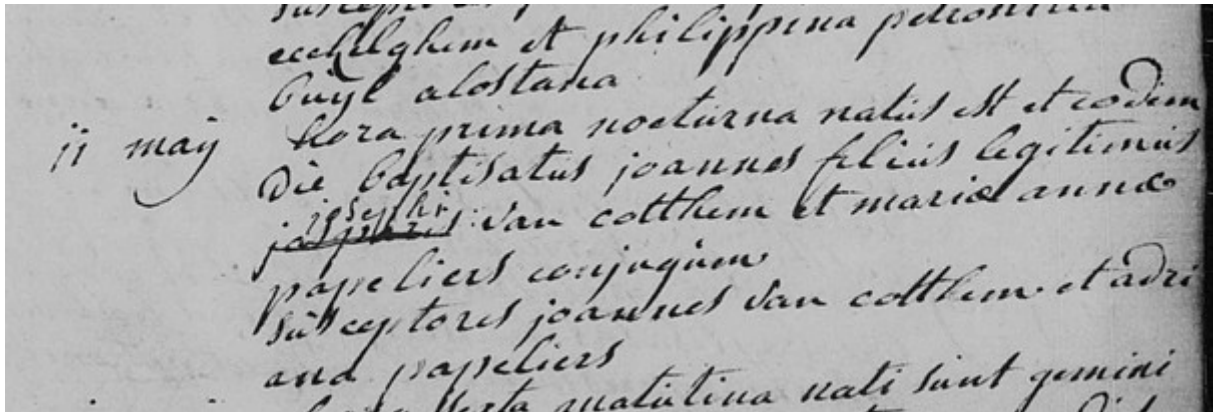 eechelghem et philippina petronilla
buyl alostana
11 maij hora prima nocturna natus est et eodem
die baptisatus joannes filius legitimus
josephi
jaspares van cotthem et mariæ annæ
papeliers conjugum
susceptores joannes van cotthem et adri
ana papeliers
hora sexta matutina nati sunt gemini